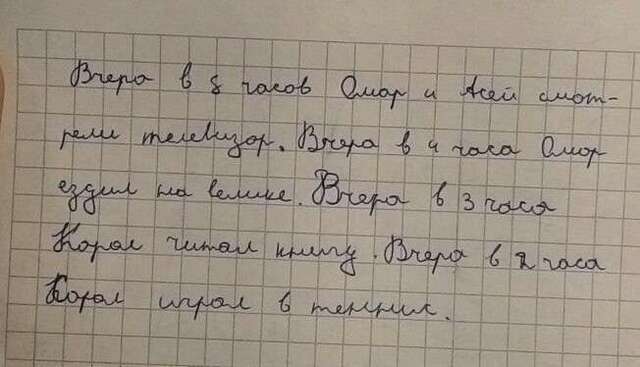 Вчера в 8 часов Омар и Асей смот-
рели телевизор. Вчера в 4 часа Омар
ездил на велике. Вчера в 3 часа
Корал читал книгу. Вчера в 2 часа
Корал играл в теннис.